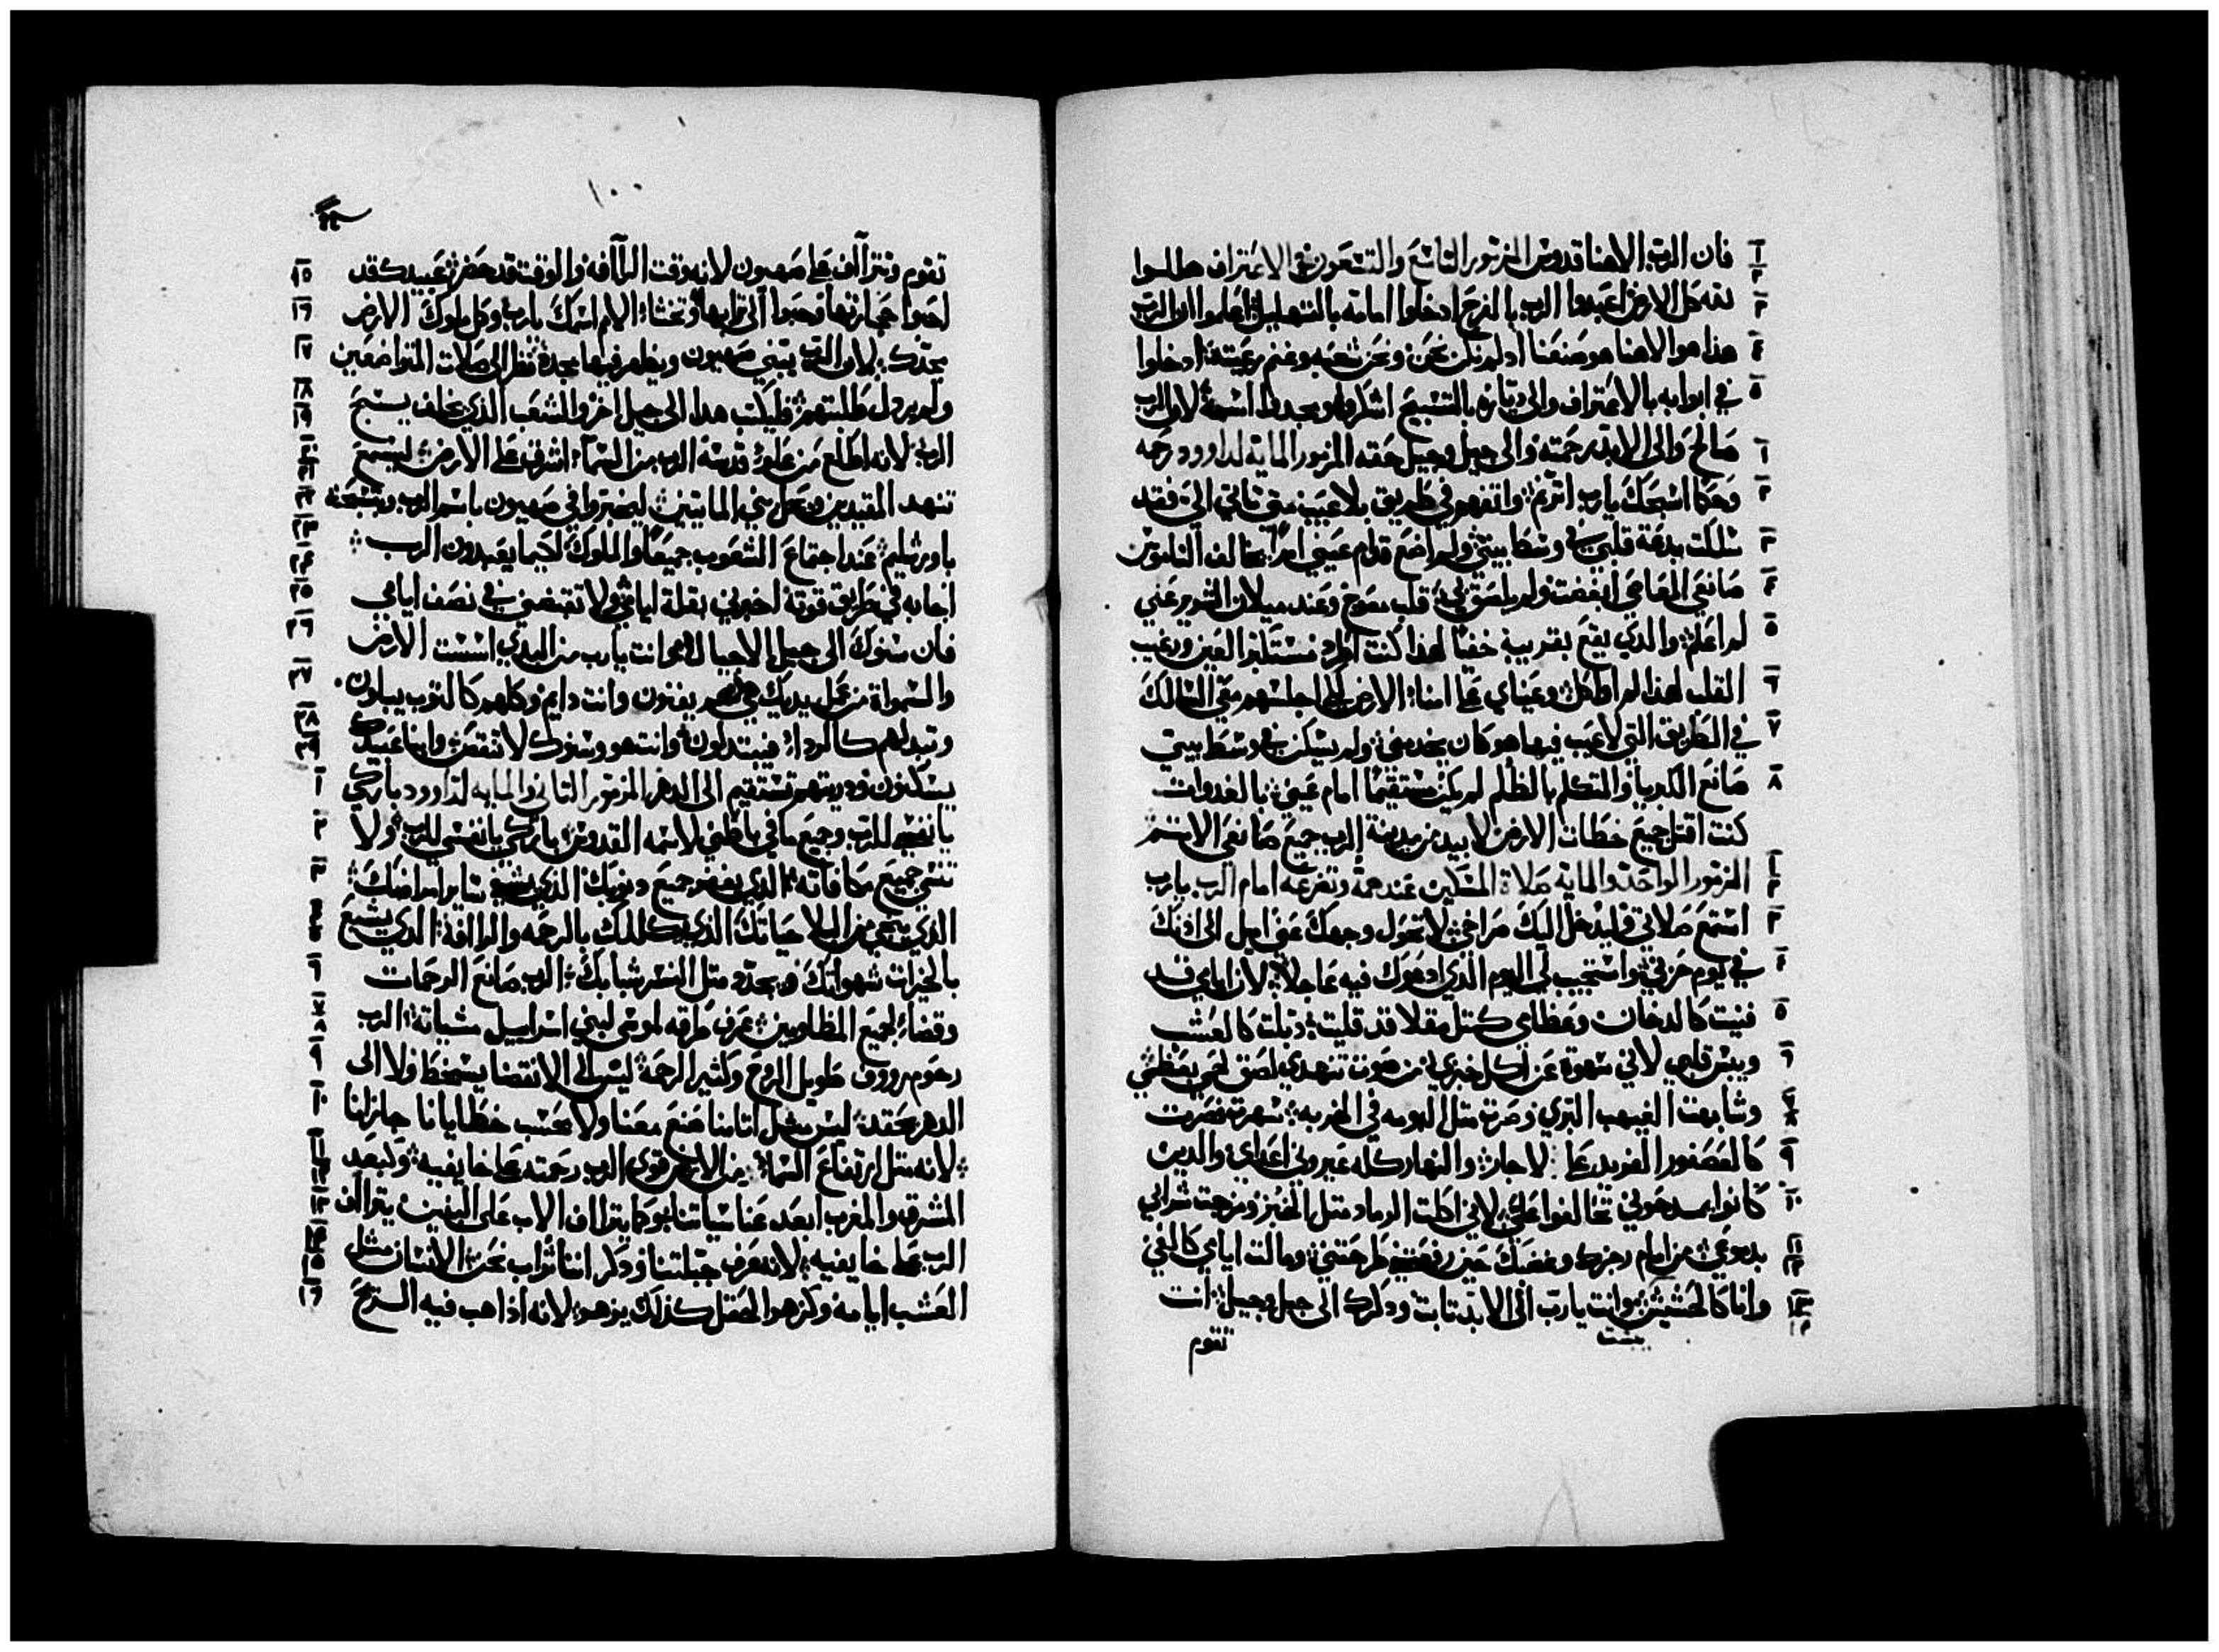 فان الرب الاهنا قدوس المزمور التاسع والتسعون في الاعتراف هللوا
لله كل الارض اعبدوا الرب بالفرح ادخلوا امامه بالتهليل اعلموا ان الرب
هذا هو الاهنا هو صنعنا اد لم نكن نحن ونحن شعبه وغنم رعيته ادخلوا
في ابوابه بالاعتراف والى دياره بالتسبيح اشكروا ومجدوا اسمه لان الرب
صالح والى الابد رحمته والى جيل وجيل حقه المزمور الماية لداوود رحمه
وحكا اسبحك يارب ارتم واتفهم في طريق بلا عيب متى تاتي الي فقد
سللكت بدعة قلبي في وسط بيتي ولم اضع قدام عيني امرا مخالف الناموس
صانعي المعاصي ابغضت ولم يلصق بي قلب معوج وعند ميلان الشرير عني
لم اعلم والدي يقع بقريبه خفيا لهذا كنت اطرد مستكبر العين ورغيب
القلب لهذا لم اواكل وعيناي على امناء الارض اجلسهم معي السالك
في الطريق التي لا عيب فيها هو كان يخدمني ولم يسكن في وسط بيتي
صانع الكبريا والتكلم بالظلم لم يكن مستقيما امام عيني بالغدوات
كنت اقتل جميع خطات الارض لابيد من مدينة الرب جميع صانعي الاتم
المزمور الواحد والماية صلاة المسكين عند همه وتضرعه امام الرب يارب
استمع صلاتي وليدخل اليك صراخي لا تحول وجهك عني اميل الى ادنك
في يوم حزني واستجيب لي اليوم الذي ادعوك فيه عاجلا لان ايامي قد
فنيت كالدخان وعظامي كمتل مقلا قد قليت دبلت كالعشب
ويبس قلبي لاني سهوت عن اكل خبزي من صوت تنهدي لصق لحمي بعظمي
وشابهت الغيهب البري وصرت متل البومه في الخربه سهرت فصرت
كالعصفور الفريد على الاجار والنهار كله عيروني اعداي والدين
كانوا يمدحوني تحالفوا علي لاني اكلت الرماد متل الخبز ومزجت شرابي
بدموعي من امام رجزك وغضبك حين رفعتني طرحتني ومالت ايامي كالفي
وانا كالحشيش يبست وانت يارب الى الابد تابت ودكرك الى جيل وجيل انت
تقوم
١٠٠
تقوم وتتراآف على صهيون لانه وقت الرآفه والوقت قد حضر عبيدك قد
احبوا حجارتها وحنوا الى ترابها وتخشاء الامم اسمك يارب وكل ملوك الارض
مجدك لان الرب يبني صهيون ويظهر فيها مجده نظر الى صلات المتواضعين
ولم يردل طلبتهم فليكتب هدا الى جيل اخر والشعب الذي يخلف يسبح
الرب لانه اطلع من علو قدسه الرب من السماء اشرف على الارض ليسمع
تنهد المقيدين ويحل بني المايتين ليخبروا في صهيون باسم الرب وتسبحته
باورشليم عند اجتماع الشعوب جميعا والملوك لكيما يعبدون الرب
اجابه في طريق قوته اخبرني بقلة ايامي ولا تقبضني في نصف ايامي
فان سنوك الى جيل الاجيال وانت يارب من البدي اسست الارض
والسمواة من عمل يديك هي هم يفنون وانت دايم وكلهم كالتوب يبلون
وتبدلهم كالردا فيتبدلون وانت هو وسنوك لا تنقص وابنا عبيدك
يسكنون ودريتهم تستقيم الى الدهر المزمور التاني والمايه لداوود باركي
يا نفسي للرب وجميع ما في باطني لاسمه القدوس باركي يا نفسي للرب ولا
تنسي جميع مكافاته الدي يغفر جميع دنوبك الذي يشفي ساير امراضك
الذي ينجي من البلا حياتك الذي يكللك بالرحمه والرافة الدي يشبع
بالخيرات شهواتك ويجدد متل النسر شبابك الرب صانع الرحمات
وقضاء لجميع المظلومين عرف طرقه لموسى لبني اسراييل مشياته الرب
رحوم رووف طويل الروح وكثير الرحمة ليس الى الانقضا يسخط ولا الى
الدهر يحقد ليس متل اتامنا صنع معنا ولا بحسب خطايانا جازانا
لانه متل ارتفاع السماء من الارض قوى الرب رحمته على خايفيه وكبعد
المشرق والمغرب ابعد عنا سياتنا وكما يتراف الاب على البنين يتراآف
الرب على خايفيه لانه عرف جبلتنا ودكر اننا تراب نحن الانسان متل
العشب ايامه وكزهر الحقل كذلك يزهر لانه اذا هب فيه الريح